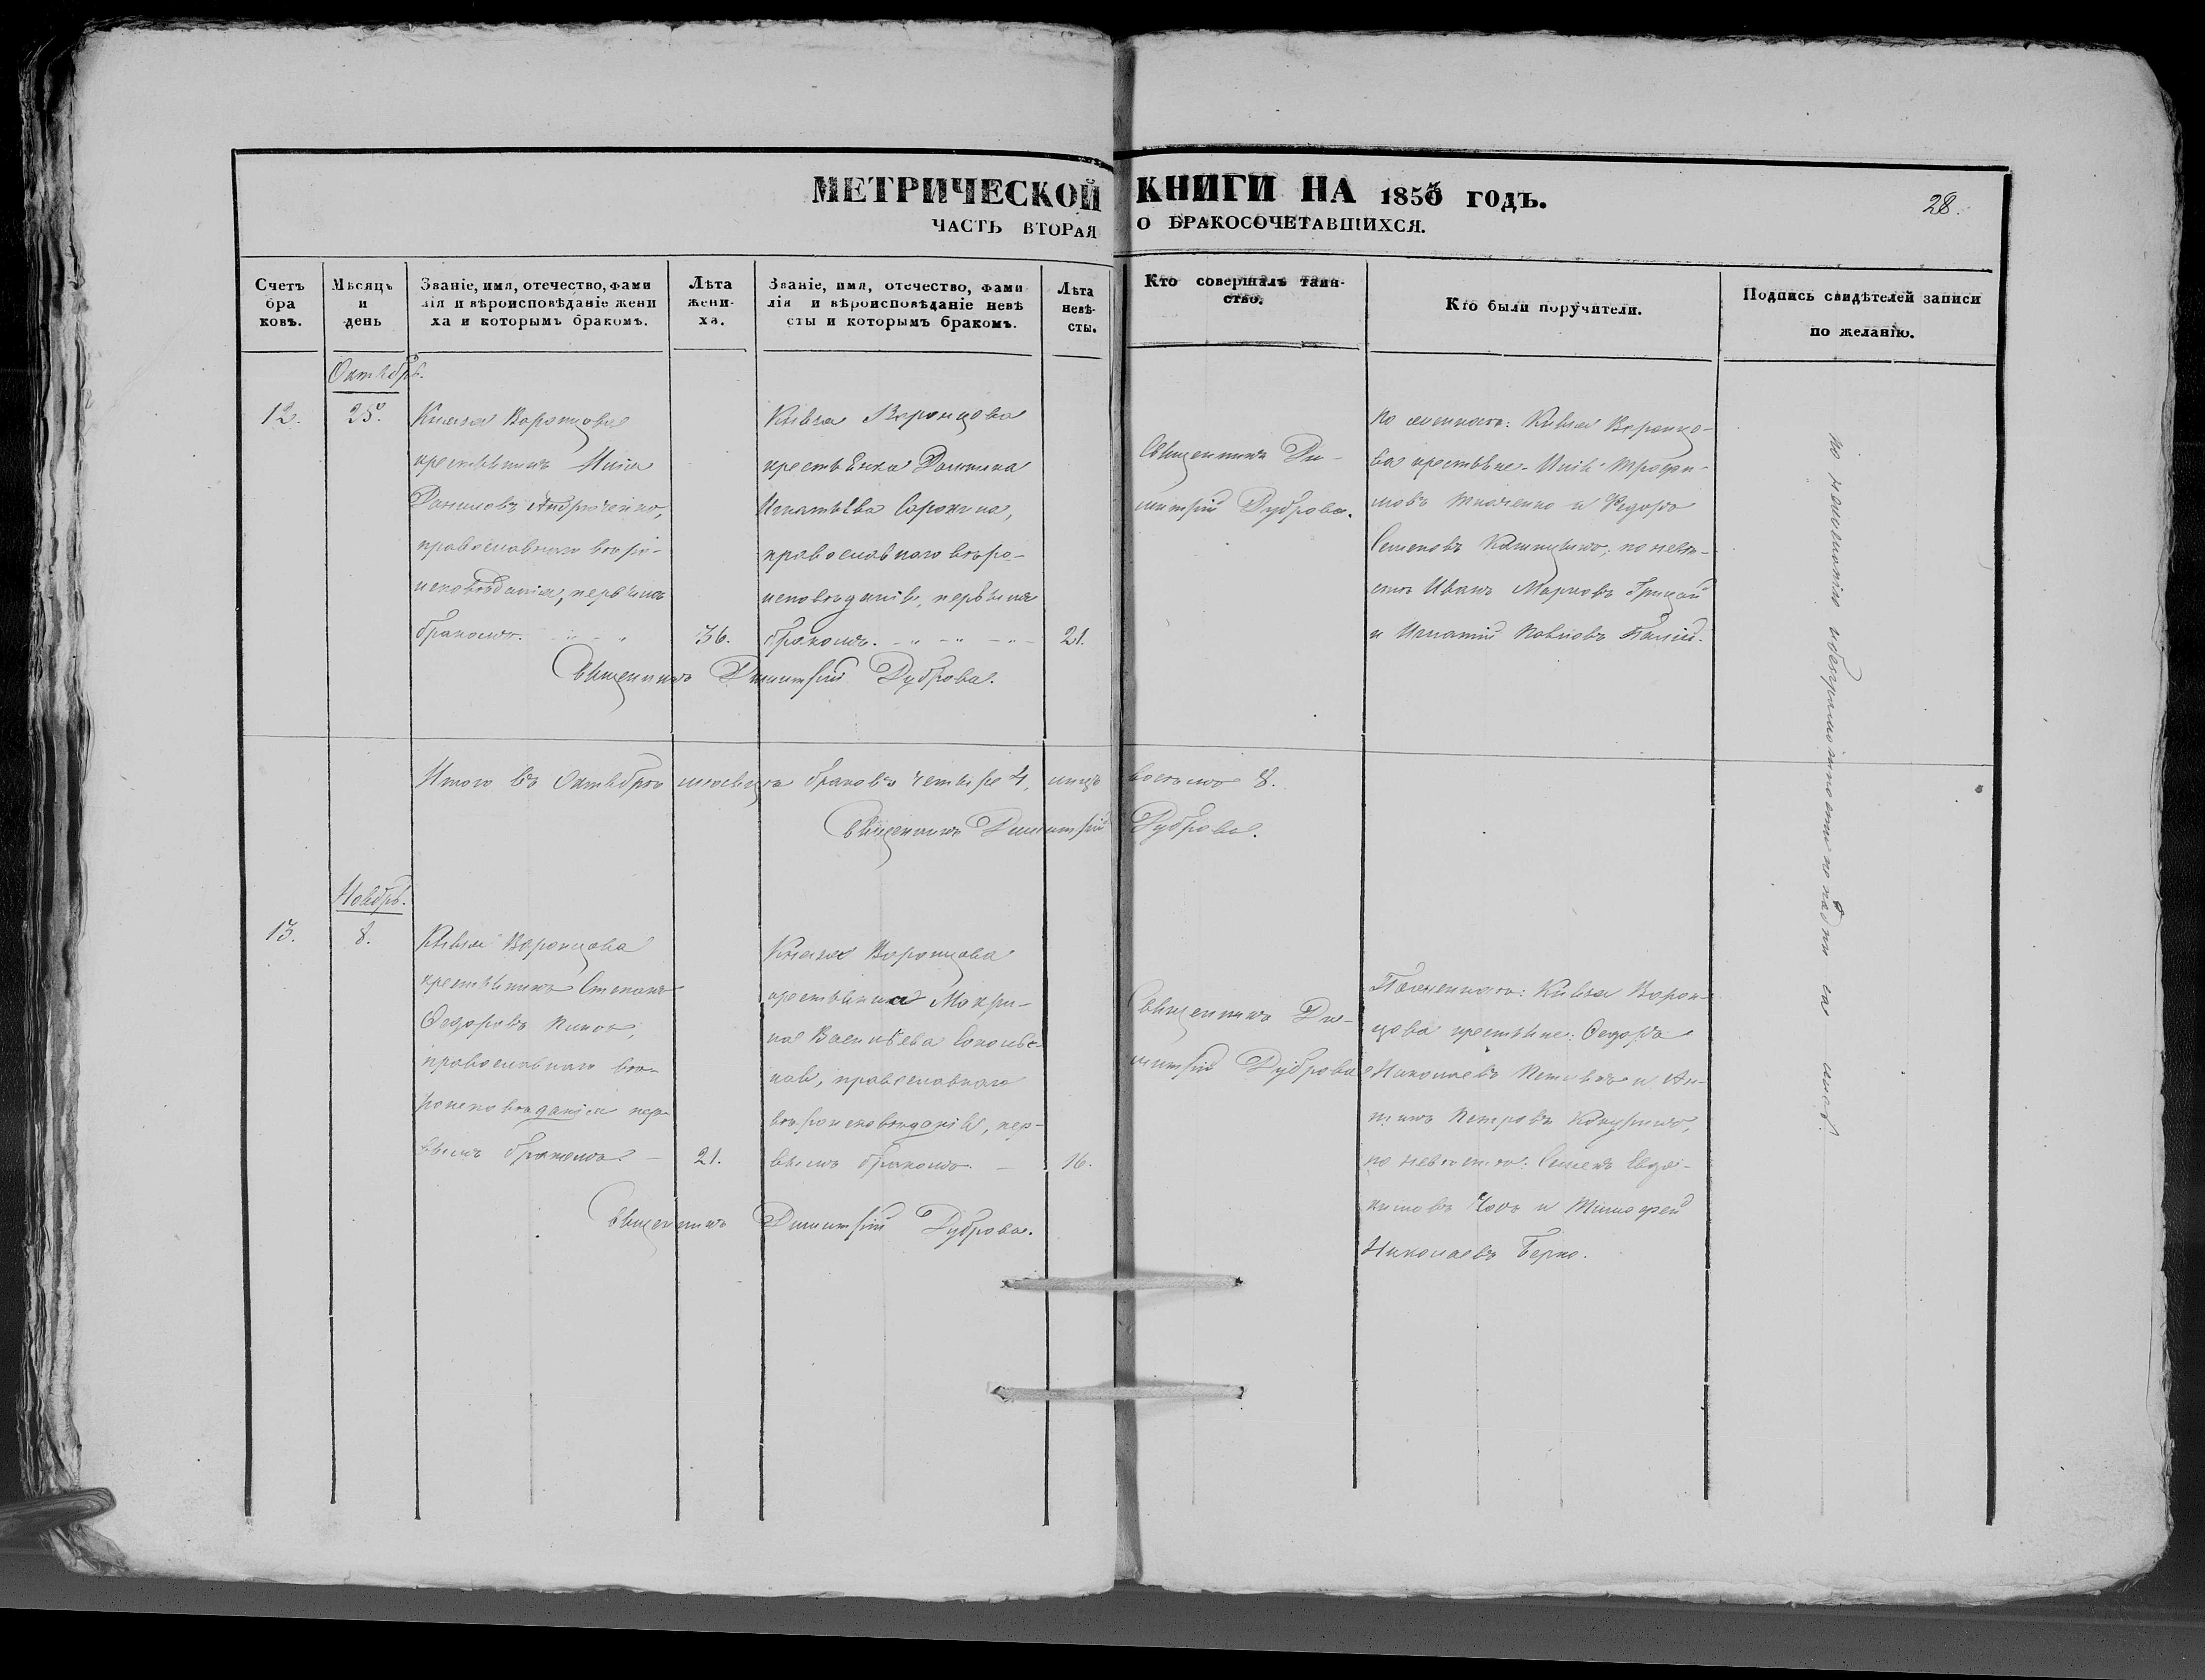 МЕТРИЧЕСКОЙ КНИГИ НА 1853 ГОДЪ.
28.
ЧАСТЬ ВТОРАЯ О БРАКОСОЧЕТАВШИХСЯ.
Счетъ бра ковъ.
Мѣсяцъ и день
Званіе, имя, отечество, фами
лія и вѣроисповѣданіе жени
ха и которымъ бракомъ.
Лѣта жени- ха.
Званіе, имя, отечество, фами
лія и вѣроисповѣданіе невѣ
сты и которымъ бракомъ.
Лѣта невѣ- сты.
Кто совершалъ таин-
ство.
Кто были поручители.
Подпись свидѣтелей записи
по желанію.
Октябрь.
12.
25.
Князя Воронцова
крестьянинъ
Даниловъ Андрюченко,
православнаго вѣро-
исповѣданія, первымъ
бракомъ.
36.
Князя Воронцова
крестьянка
Игнатьева Сорокина,
православнаго вѣро-
исповѣданія, первымъ
бракомъ.
21.
Священникъ Ди-
митрій Дуброва.
По женихѣ: Князя Воронцо-
ва крестьяне: Трофи-
мовъ Ткаченко и Федоръ
Семеновъ по невѣ-
стѣ Иванъ Марковъ Грицай
и Игнатій Павловъ Палій.
Священникъ Димитрій Дуброва.
Итого въ Октябрѣ мѣсяцѣ браковъ четыре 4, лицъ восемь 8.
Священникъ Димитрій Дуброва.
Ноябрь.
13.
8.
Князя Воронцова
крестьянинъ Степанъ
Ѳедоровъ
православнаго вѣ-
роисповѣданія пер-
вымъ бракомъ.
21.
Князя Воронцова
крестьянка Макри-
на Васильева
православнаго
вѣроисповѣданія, пер-
вымъ бракомъ.
16.
Священникъ Ди-
митрій Дуброва
По женихѣ: Князя Ворон-
цова крестьяне: Ѳедоръ
Николаевъ и Ан-
Петровъ
по невѣстѣ: Семенъ Евдо-
кимовъ и Тимофей
Николаевъ Берко.
Священникъ Димитрій Дуброва.